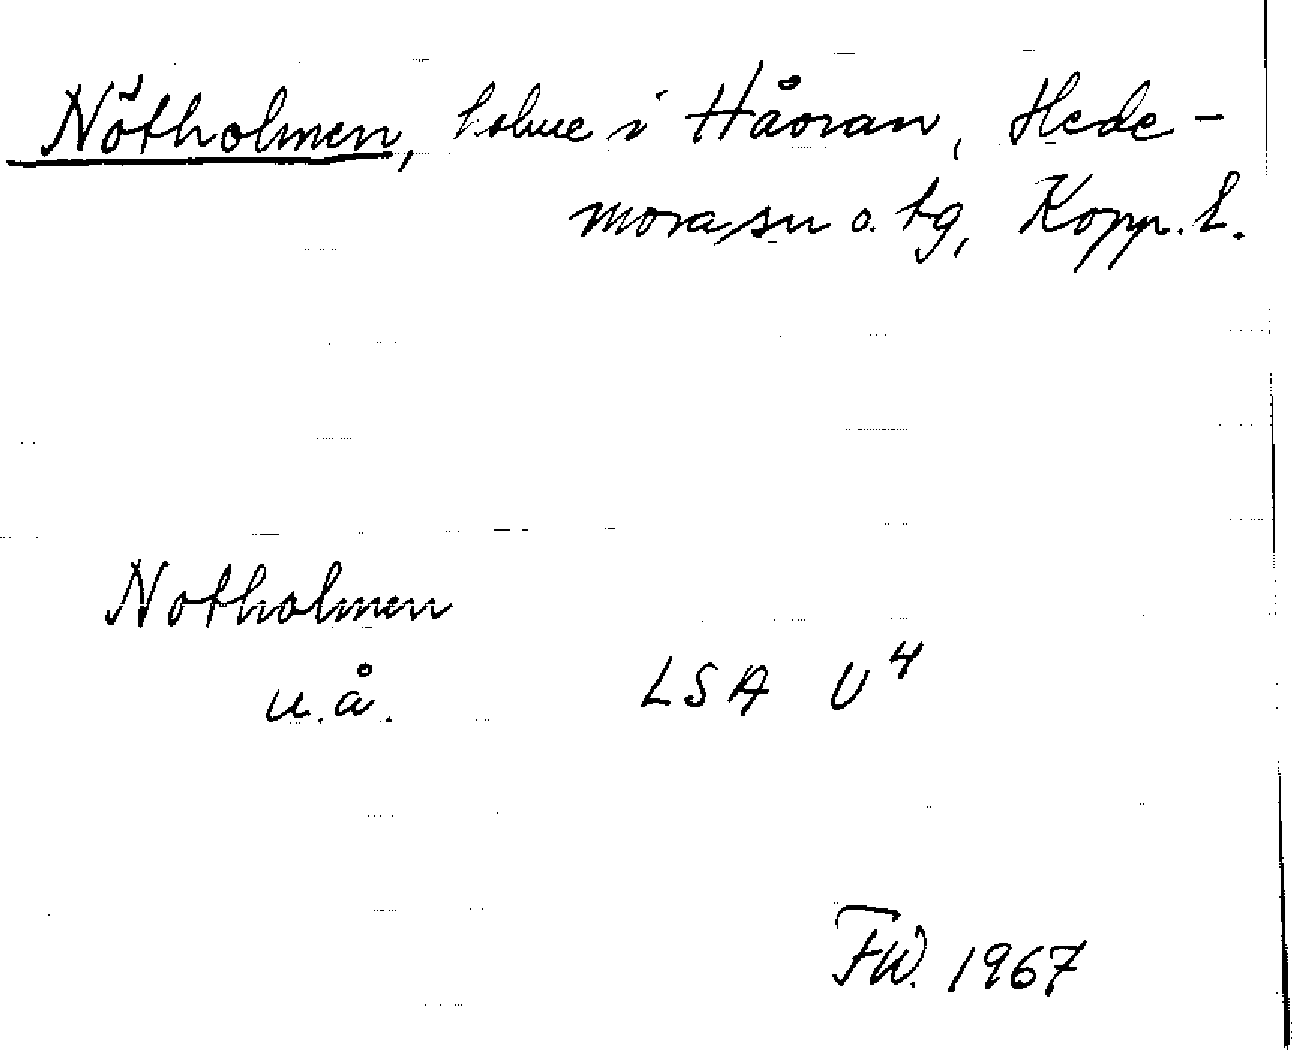 Nötholmen, holme i Håoran, Hede-
mora sn o. tg, Kopp. l.
Notholmen
u.å. LSA U4
FW. 1967